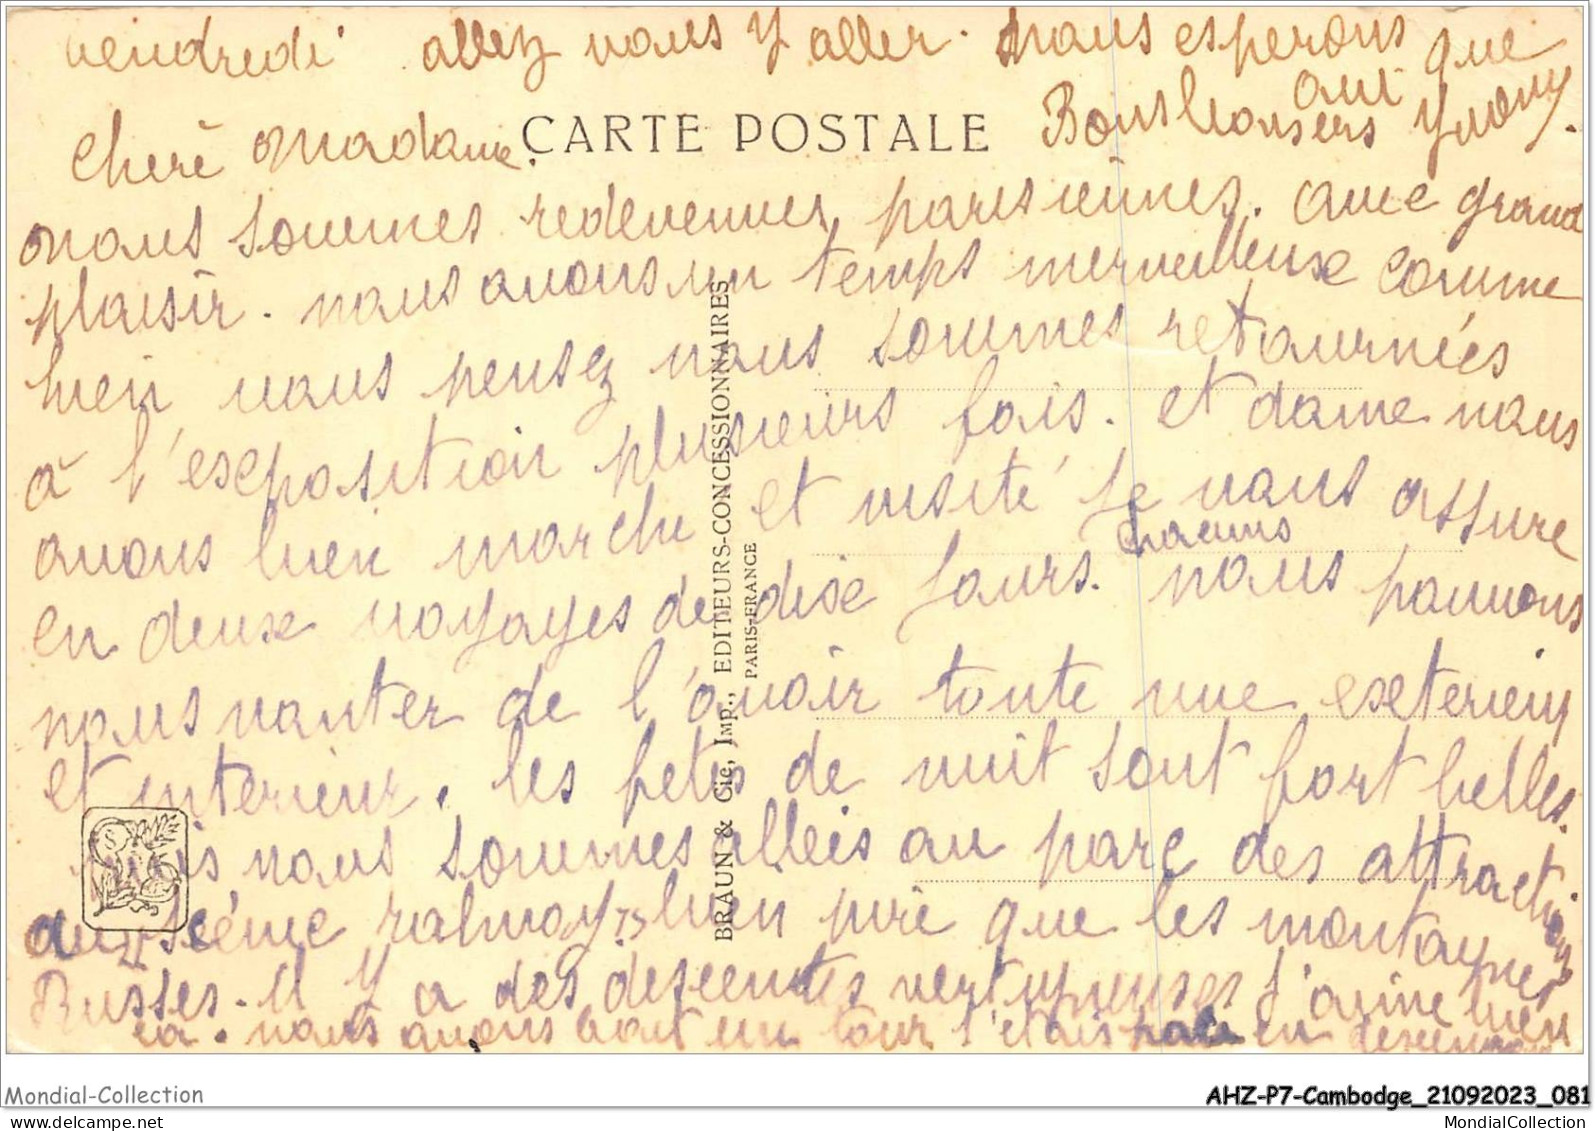 vendredi allez vous y aller. nous esperons que
oui
CARTE POSTALE
Bons baisers Yvony.
Cherè Madame.
nous sommes redevenues parisiennes. avec grand
plaisir. nous avons un temps merveilleuse comme
bien vous pensez nous sommes retournées
à l'exposition plusieurs fois. et dame nous
avons bien marche et visité je vous assure
en deux voyages de dix jours. chacuns nous pouvons
nous vanter de l'avoir toute vue exterieur
et interieur. les fetes de nuit sont fort belles.
mais nous sommes alleis au parc des attractions
au scénic ralway bien pire que les montagnes
Russes. il y a des descentes vertigneuses j'aime bien
ca. nous avons fait un tour j'etais en
BRAUN & Cie, IMP., EDITEURS-CONCESSIONNAIRES
PARIS-FRANCE
Mondial-Collection
AHZ-P7-Cambodge_21092023_081
MondialCollection